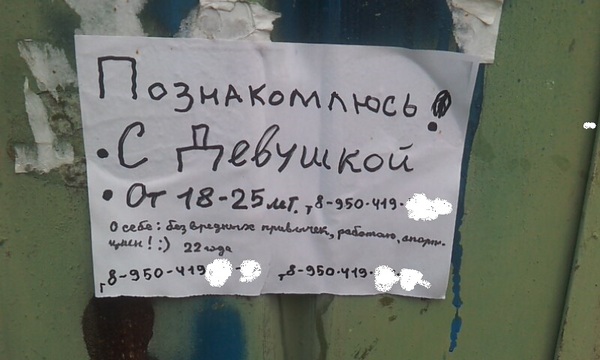 Познакомлюсь!
• С Девушкой
• От 18-25 лет. т 8-950-419-
О себе: без вредных привычек, работаю, спорт-
цмен! :) 22 года
т 8-950-419 т 8-950-419-